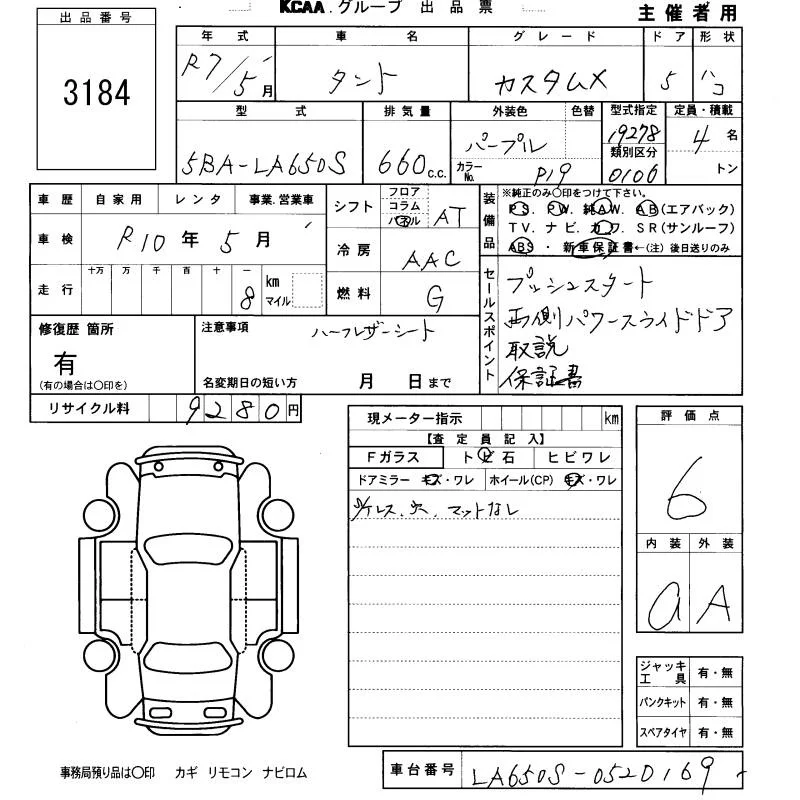 出品番号
3184
KCAA.グループ 出品票
主催者用
年式 車名 グレード ドア 形状
R7/5月 タント カスタムX 5 ハコ
型式 排気量 外装色 色替 型式指定 定員・積載
5BA-LA650S 660c.c. パープル 19278 4名
類別区分
カラーNo. P19 0106 トン
車歴 自家用 レンタ 事業.営業車
シフト フロア コラム パネル AT
装備品
※純正のみ○印をつけて下さい。
PS. PW. 純AW. AB(エアバック)
TV. ナビ. カワ. SR(サンルーフ)
ABS・新車保証書←(注)後日送りのみ
車検 R10年5月
冷房 AAC
走行 十万 万 千 百 十 一 8 km マイル
燃料 G
セールスポイント
プッシュスタート
両側パワースライドドア
取説
保証書
修復歴 箇所
有
(有の場合は○印を)
注意事項 ハーフレザーシート
名変期日の短い方 月 日まで
リサイクル料 9280円
現メーター指示 km
【査定員記入】
Fガラス トビ石 ヒビワレ
ドアミラー キズ・ワレ ホイール(CP) キズ・ワレ
内ケレス、穴、マットなし
評価点
6
内装 外装
a A
ジャッキ工具 有・無
パンクキット 有・無
スペアタイヤ 有・無
事務局預り品は○印 カギ リモコン ナビロム
車台番号 LA650S-0520169